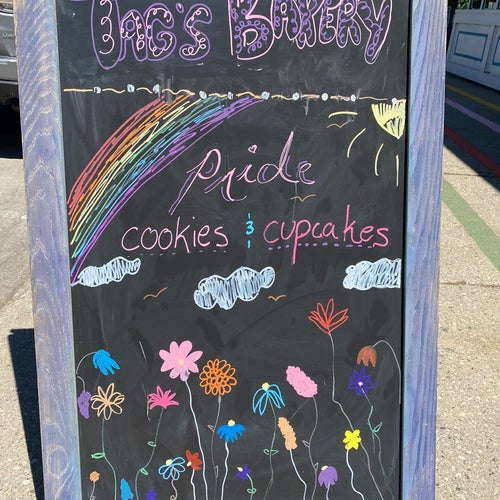 TAG'S BAKERY
Pride
cookies & cupcakes